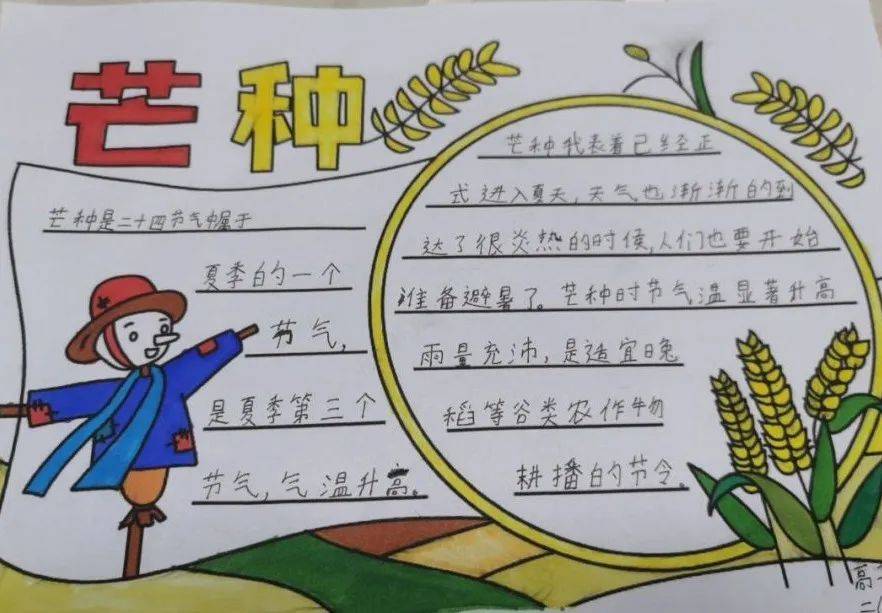 芒种
芒种是二十四节气中属于
夏季的一个
节气，
是夏季第三个
节气，气温升高。
芒种代表着已经正
式进入夏天，天气也渐渐的到
达了很炎热的时候，人们也要开始
准备避暑了。芒种时节气温显著升高
雨量充沛，是适宜晚
稻等谷类农作物
耕播的节令。